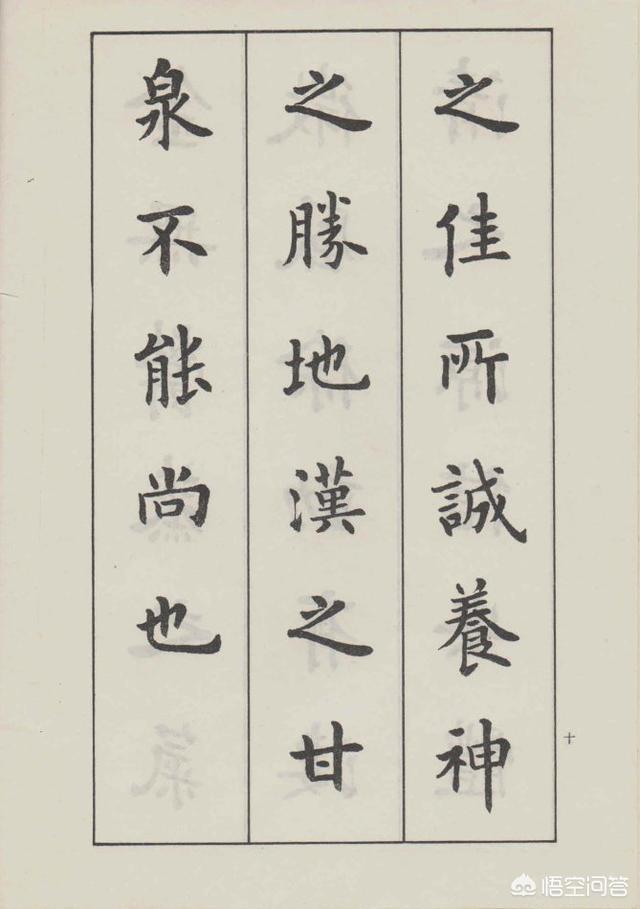 之佳所誠養神
之勝地漢之甘
泉不能尚也
十
悟空问答